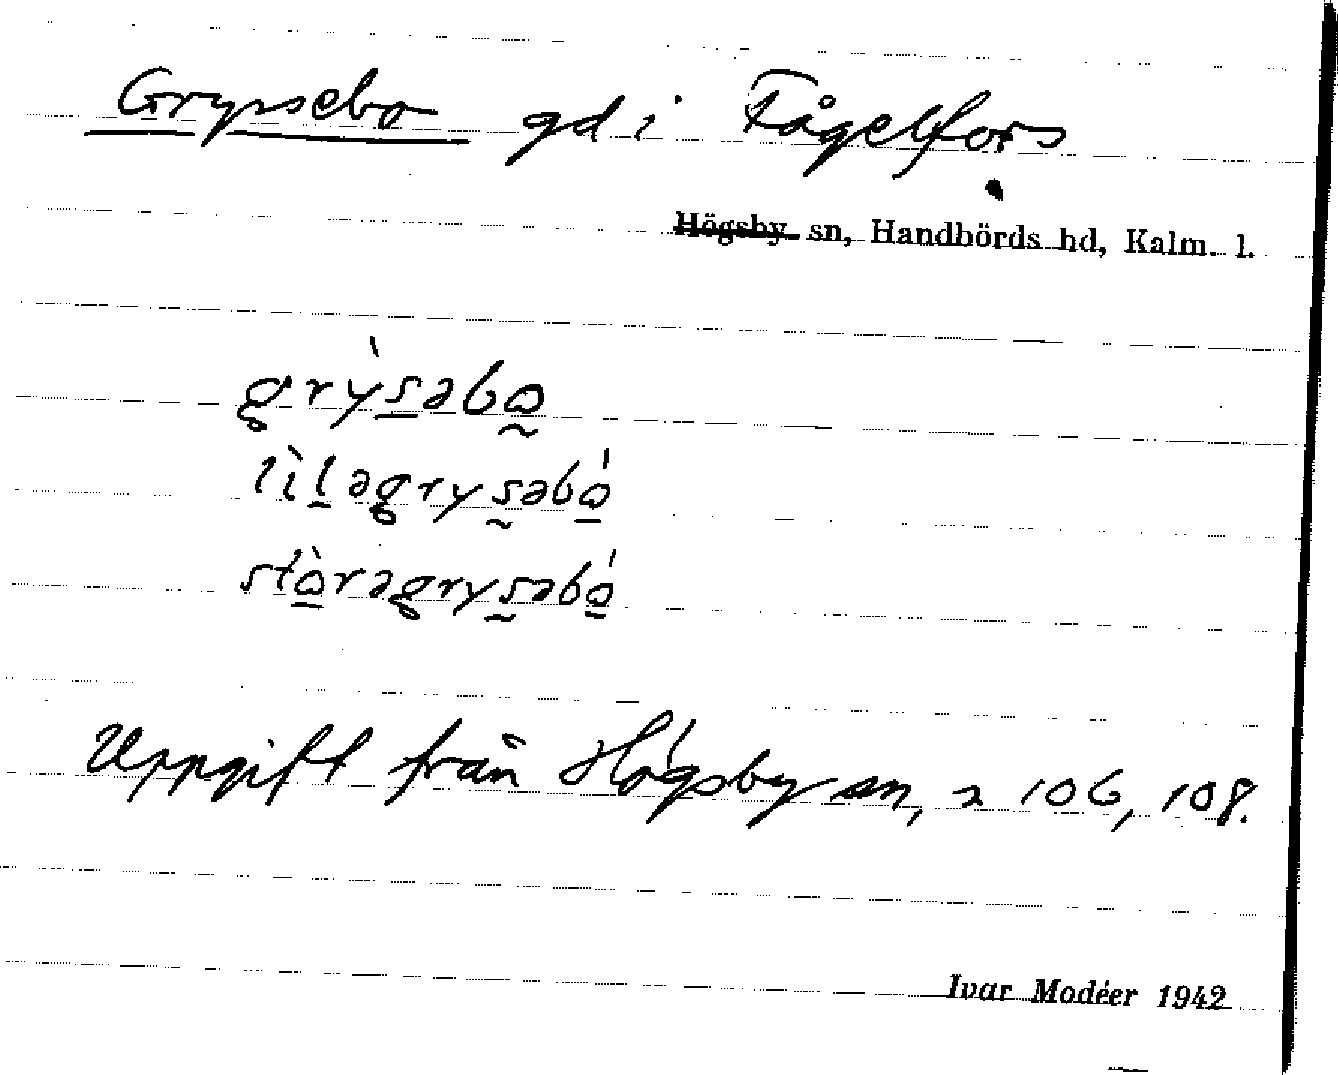 Gryssebo gd i Fågelfors
Högsby sn, Handbörds hd, Kalm. l.
grỳsəbo
lìləgrysəbó
stòrəgrysəbó
Uppgift från Högsby sn, 106, 108.
Ivar Modéer 1942